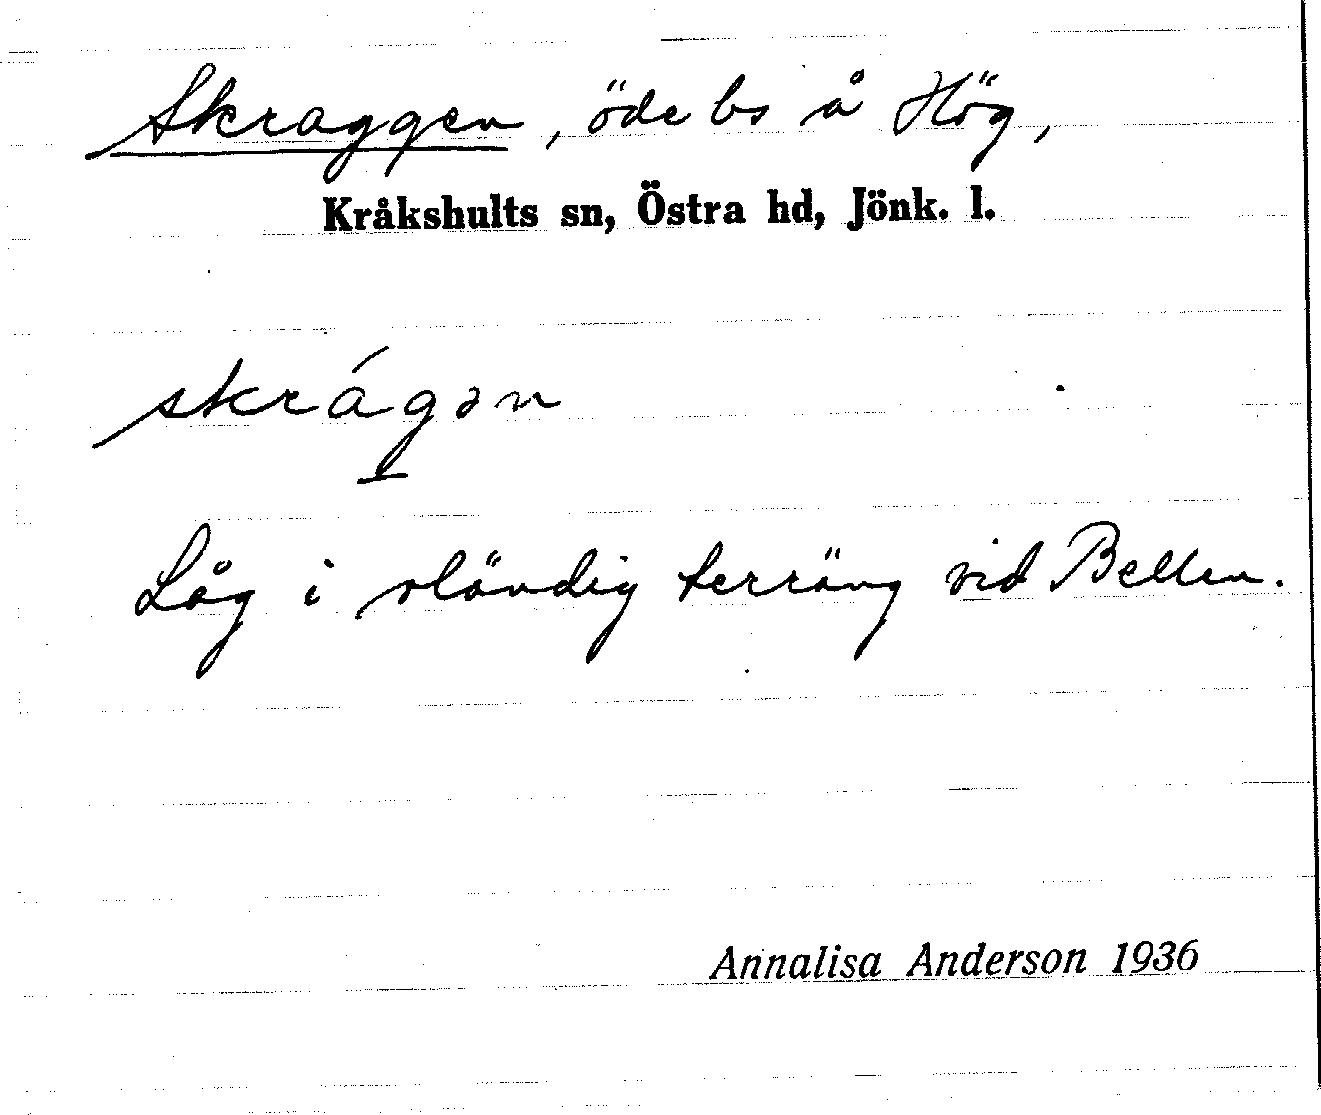 Skraggen, öde bs å Hög,
Kråkshults sn, Östra hd, Jönk. l.
skrágən
Låg i sländig terräng vid Bellen.
Annalisa Anderson 1936